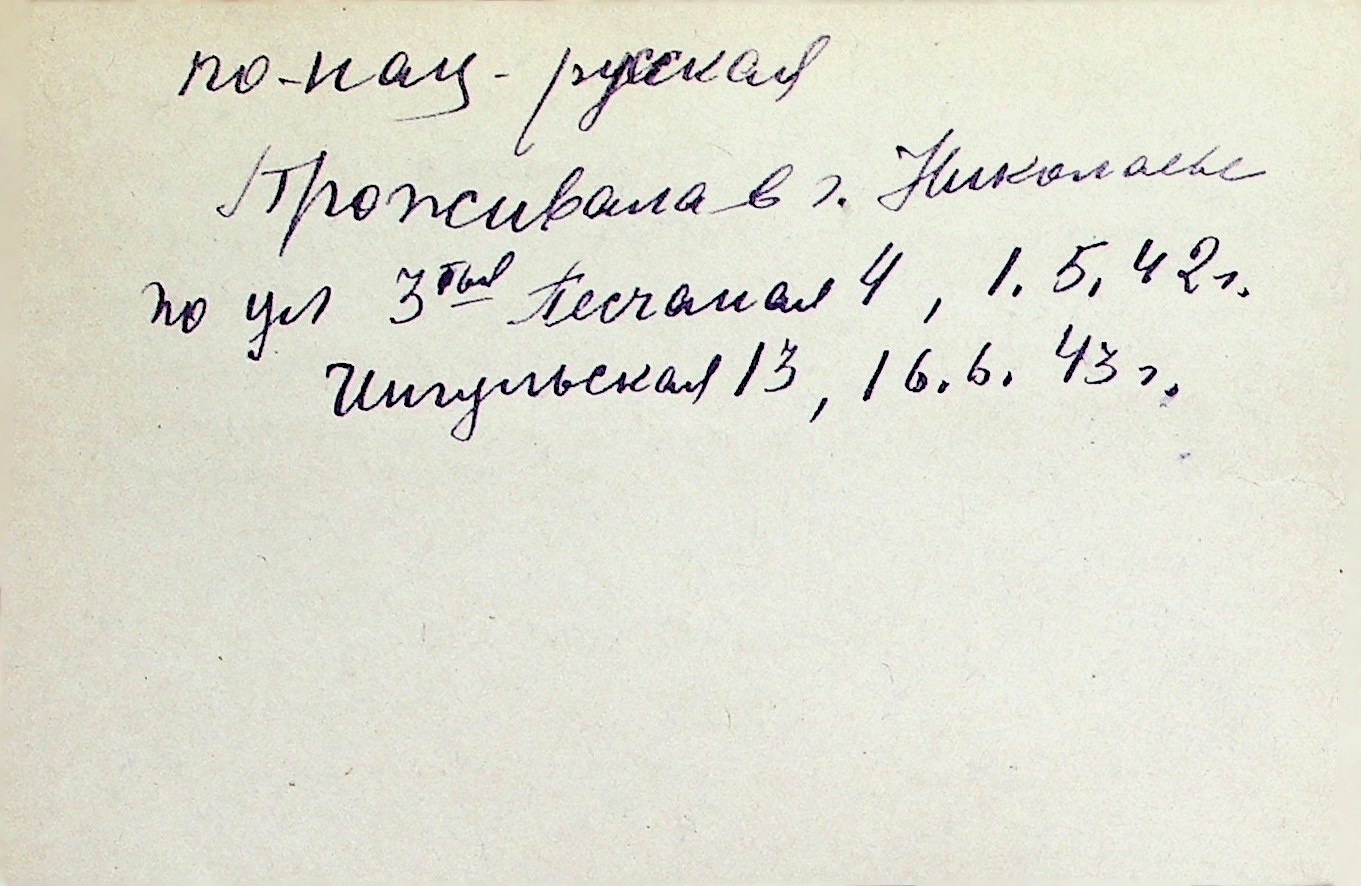 по-нац- русская
Проживала в г. Николаеве
по ул 3тья Песчаная 4, 1.5.42г.
Ингульская 13, 16.6.43г.